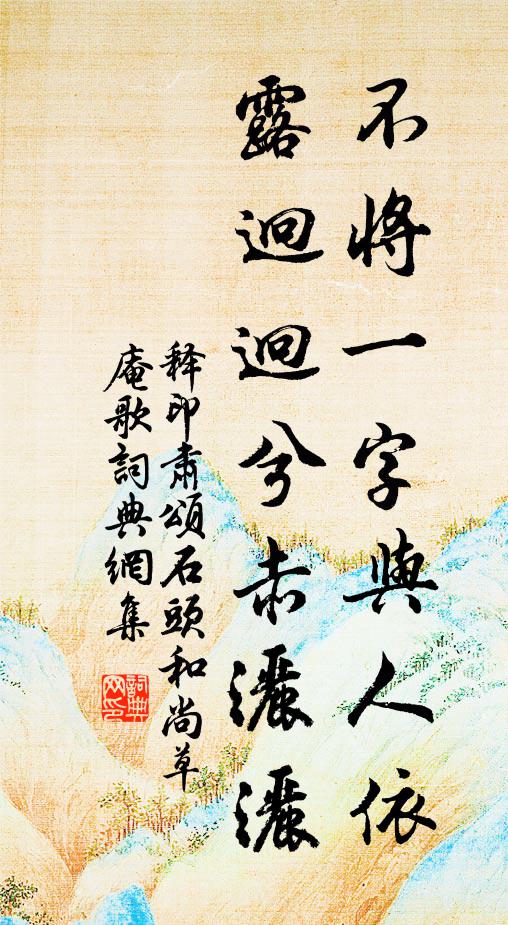 不將一字與人依
露迥迥兮赤灑灑
釋印肅頌石頭和尚草
庵歌詞典網集
詞典網印